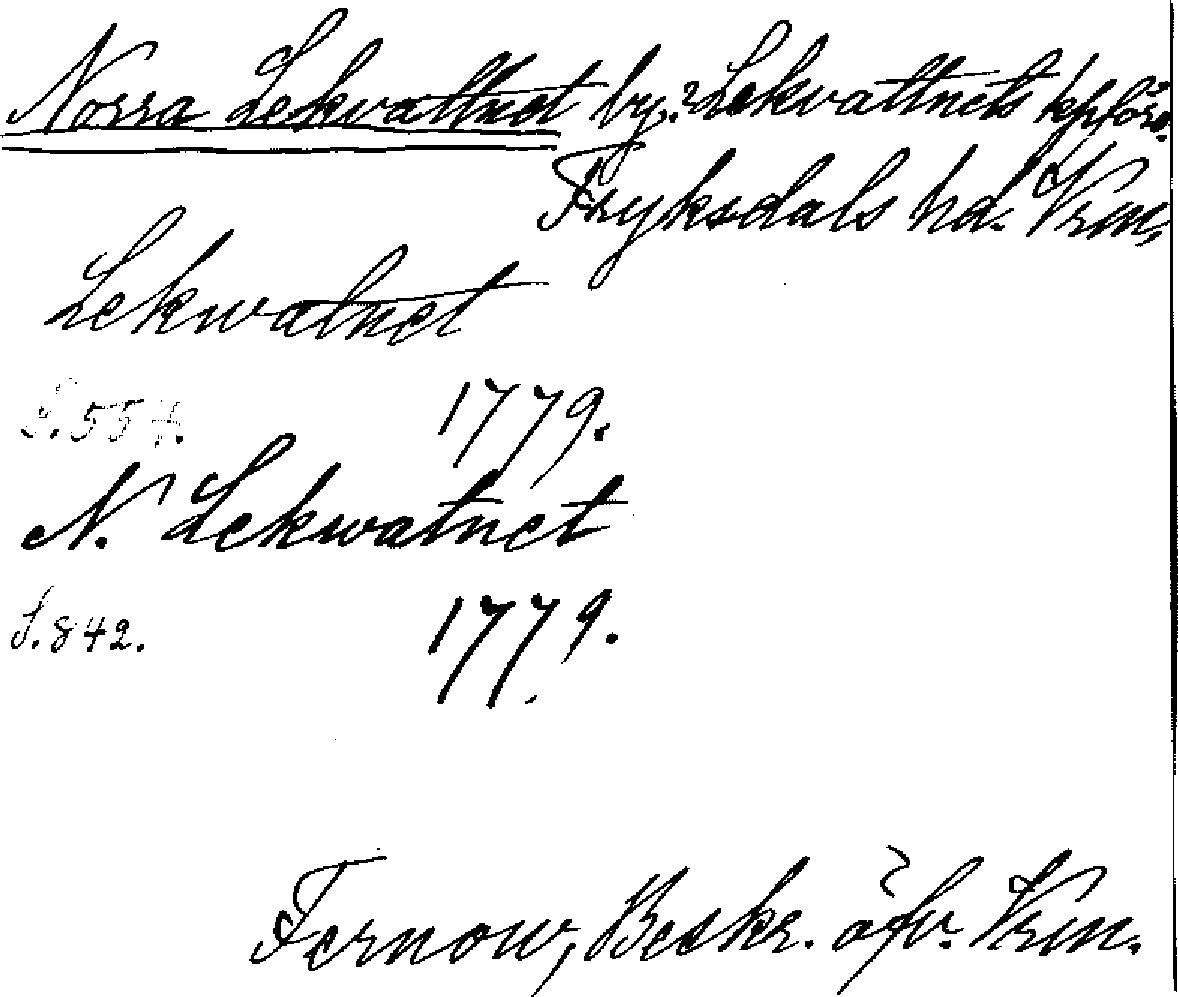 Norra Lekvattnet by. ? Lekvattnets kpförs.
Fryksdals hd. Vrm,
Lekwatnet
S. 554. 1779.
N. Lekwatnet
S. 842. 1779.
Fernow, Beskr. öfv. Vrm.